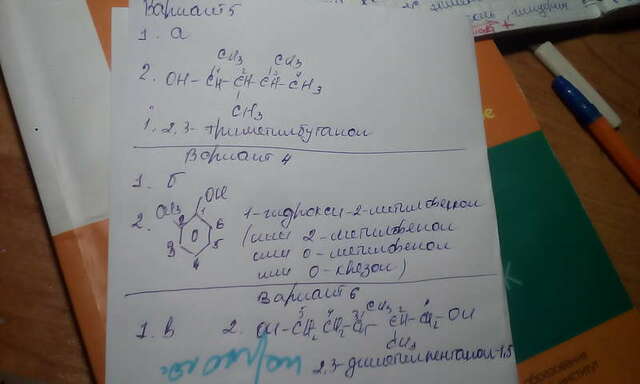 Вариант 5
1. а
CH₃ CH₃
2. OH - CH - CH - CH - CH₃
CH₃
1. 2,3- триметилбутанол
Вариант 4
1. б
OH
2. CH₃ 1 2 3 4 5 6 O
1-гидрокси-2-метилбензол
(или 2-метилфенол
или о-метилфенол
или о-крезол)
Вариант 6
1. в 2. OH - CH₂ - CH₂ - CH - CH - CH₂ - OH
CH₃
CH₃
2,3-диметилпентанол-1,5